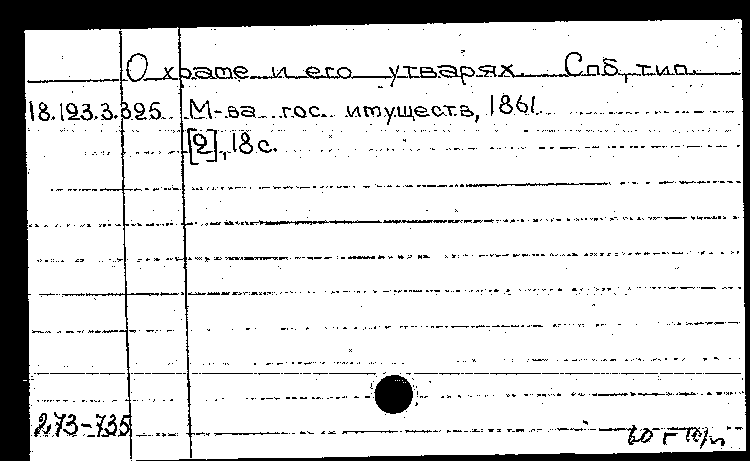 О храме и его утварях. Спб, тип.
18.123.3.325 М-ва гос. имуществ, 1861.
[2], 18 с.
273-735
60 г